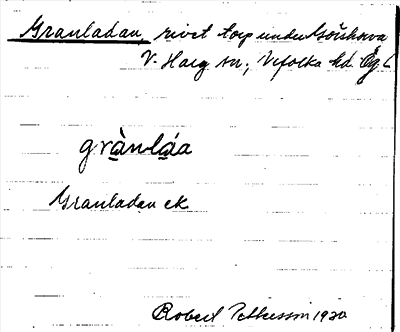 Granladan, rivet torp under Isöshorva
V. Harg sn; Vifolka hd. Ög.
grànláa
Granladan ek
Robert Pettersson 1930